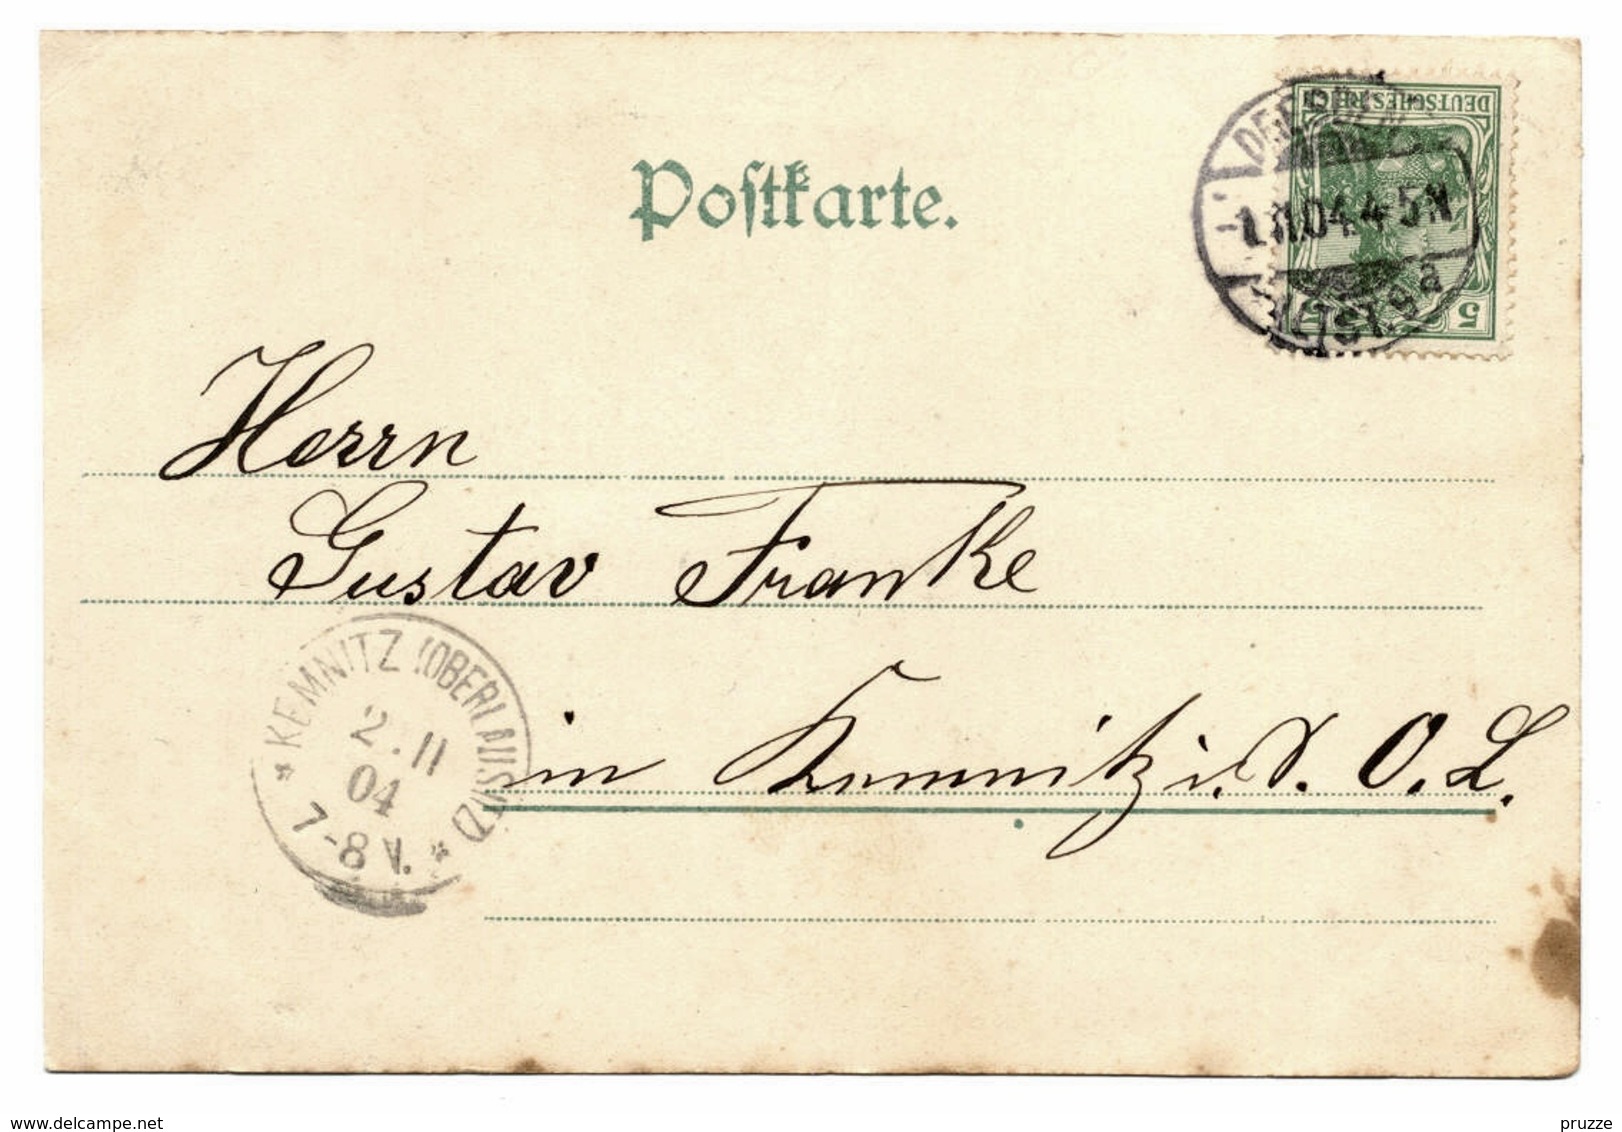 Postkarte.
DEUTSCHES REICH
1.11.04.4-5N
a
5 5
Herrn
Gustav Franke
in Kemnitz i. S. O. L.
* KEMNITZ (OBERLAUSITZ) *
2.11
04
7-8 V.
www.delcampe.net
pruzze